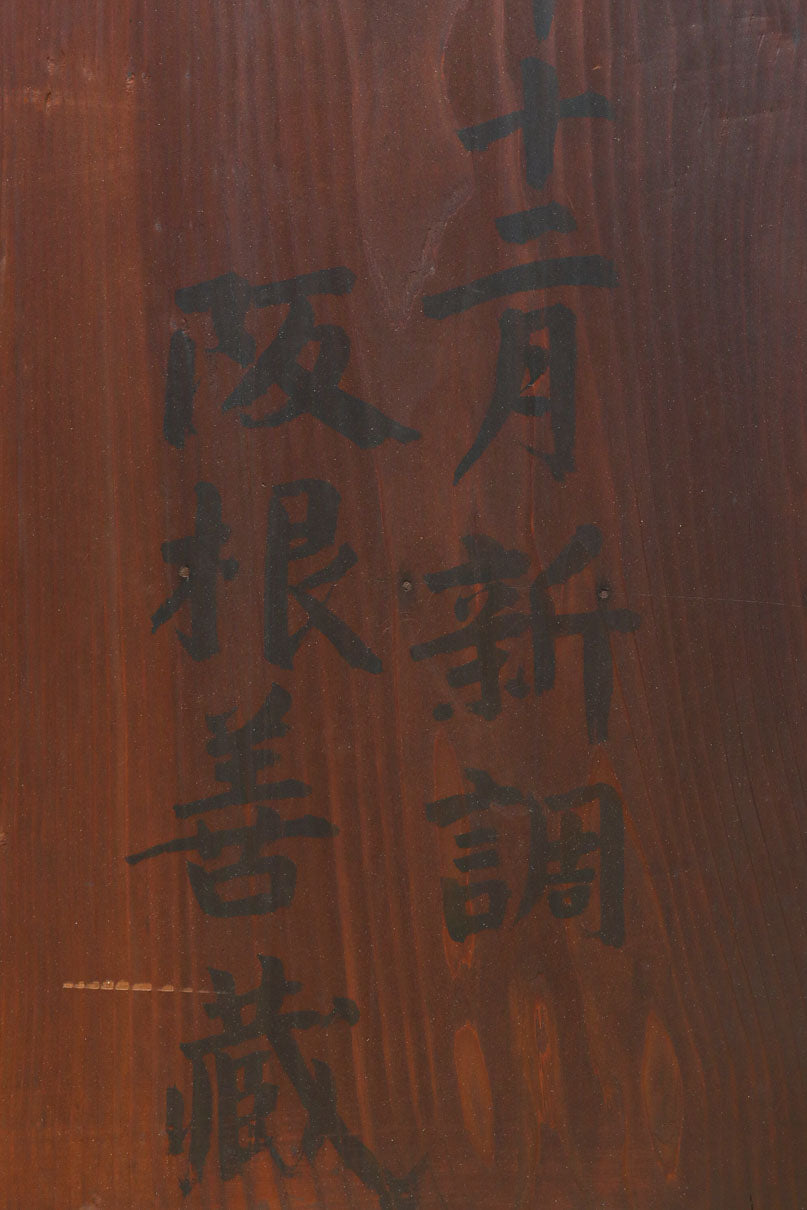 十二月新調
阪根善藏